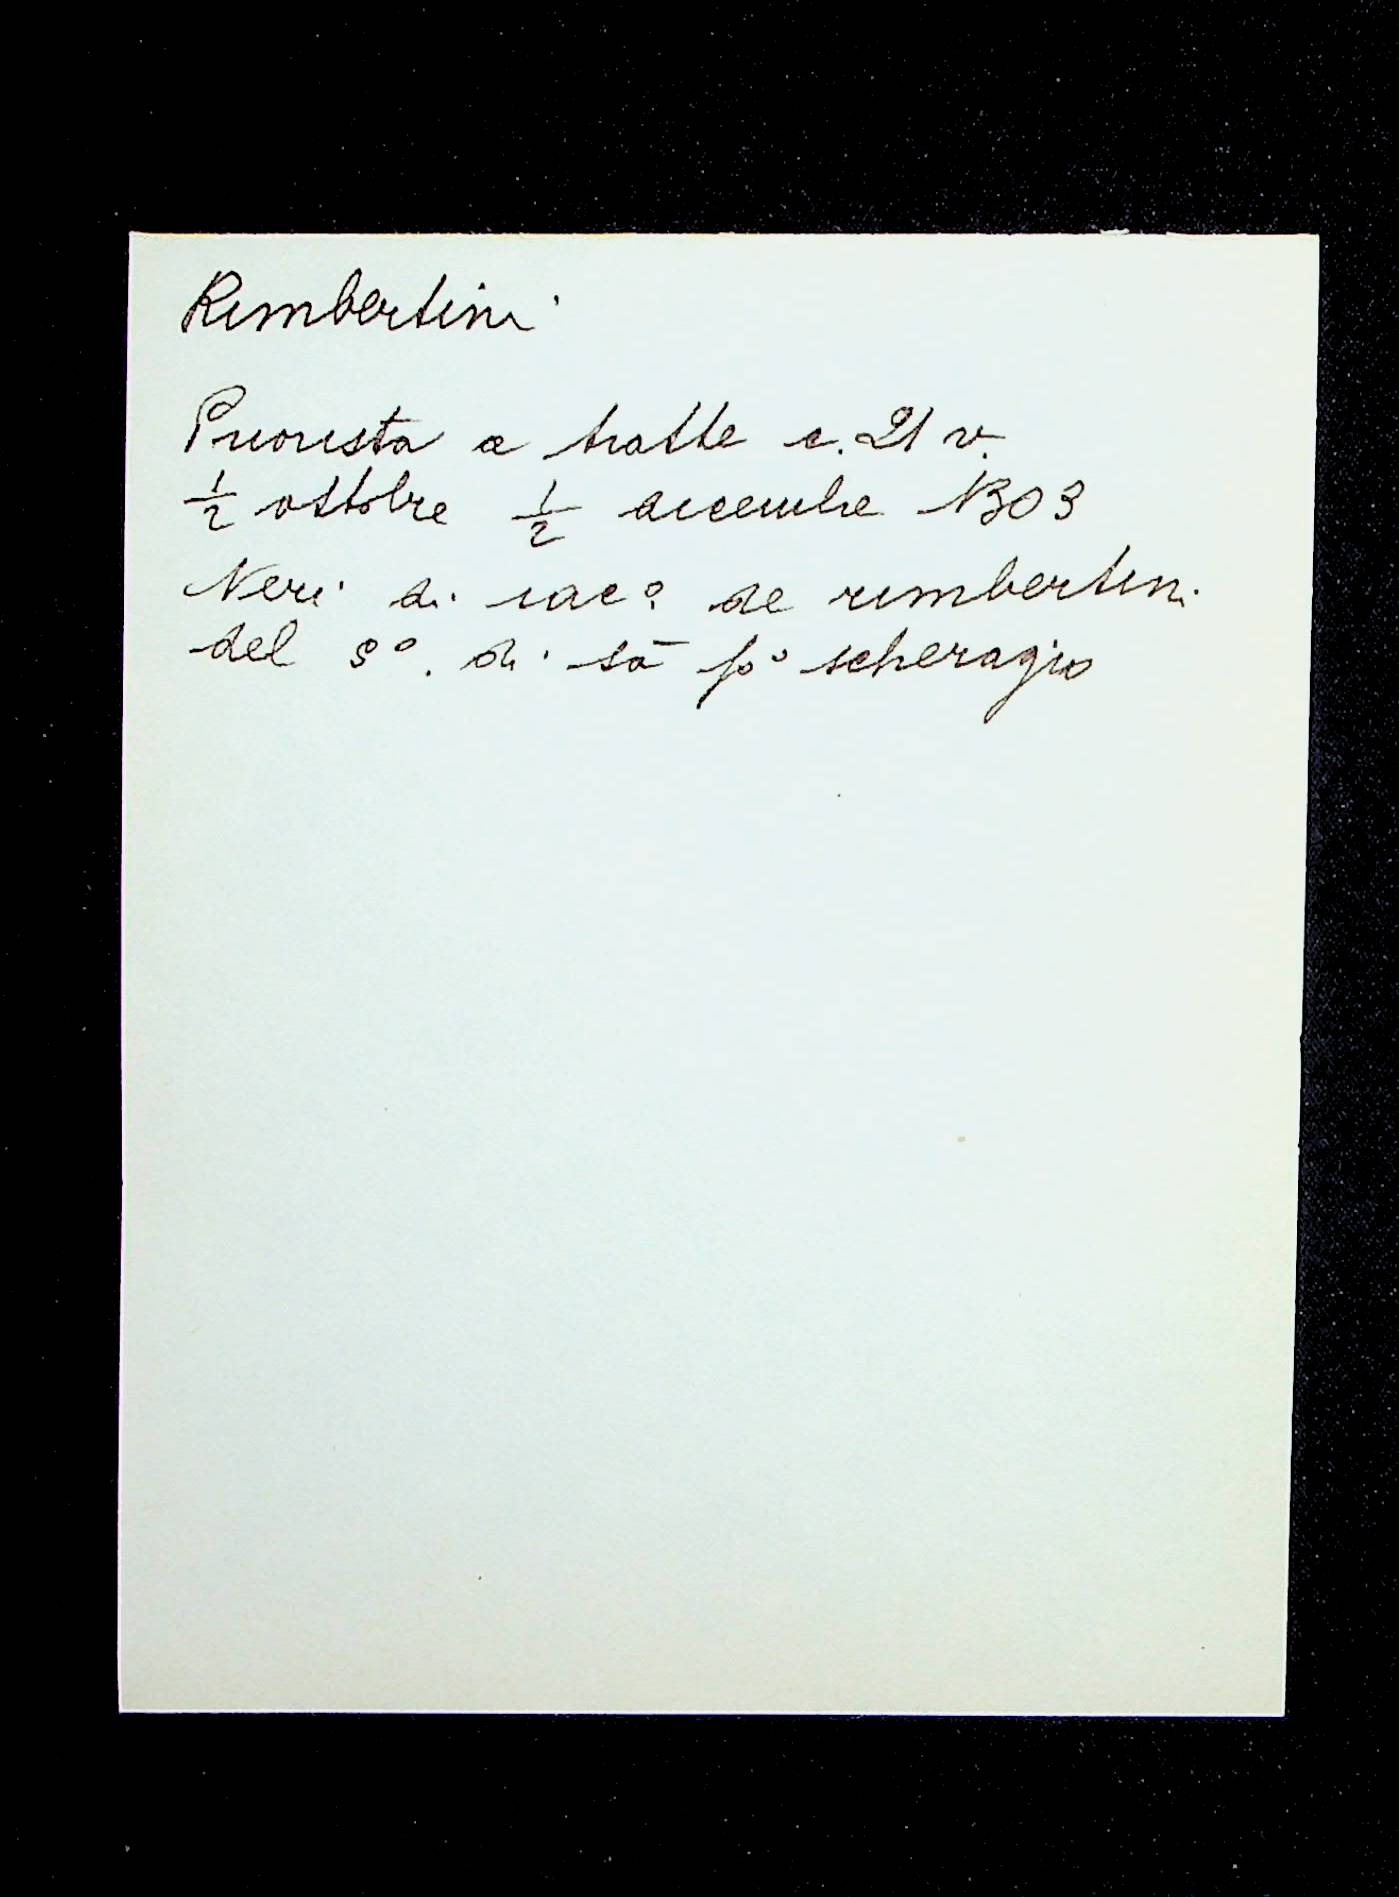 Rimbertini
Priorista a tratte c. 21 v.
½ ottobre ½ dicembre 1303
Neri di iac.o de rimbertini
del so. di sā po scheragio